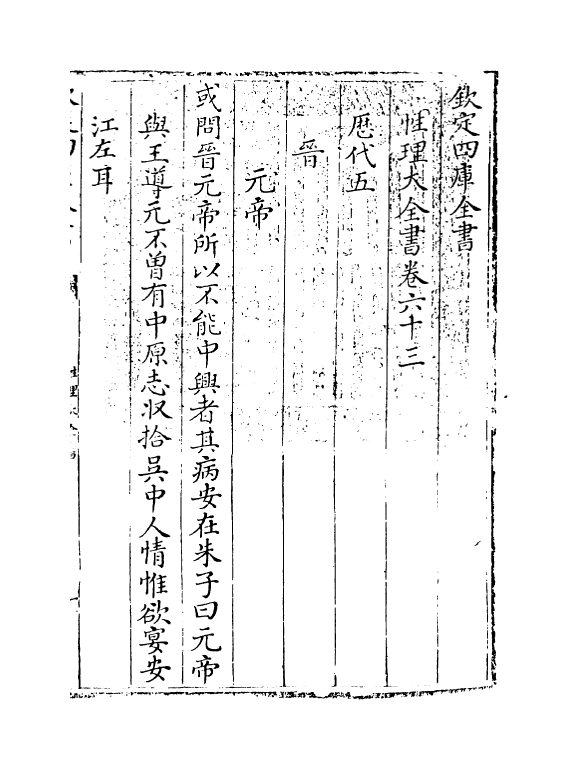 欽定四庫全書
性理大全書卷六十三
歴代五
晉
元帝
或問晉元帝所以不能中興者其病安在朱子曰元帝
與王導元不曾有中原志収拾吳中人情惟欲宴安
江左耳